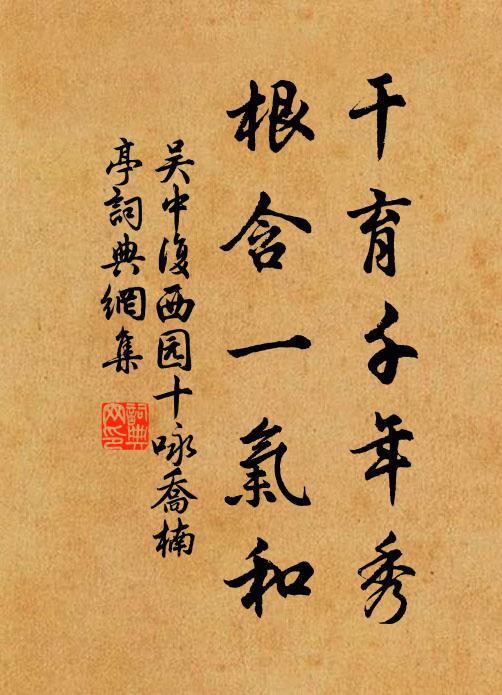 干育千年秀
根含一氣和
吴中復西园十咏喬楠
亭詞典網集
詞典网印